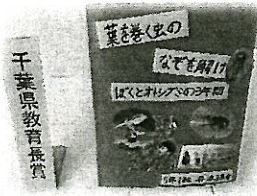 千葉県教育長賞
葉を巻く虫の
なぞを解け
ぼくとオトシブミの3年間